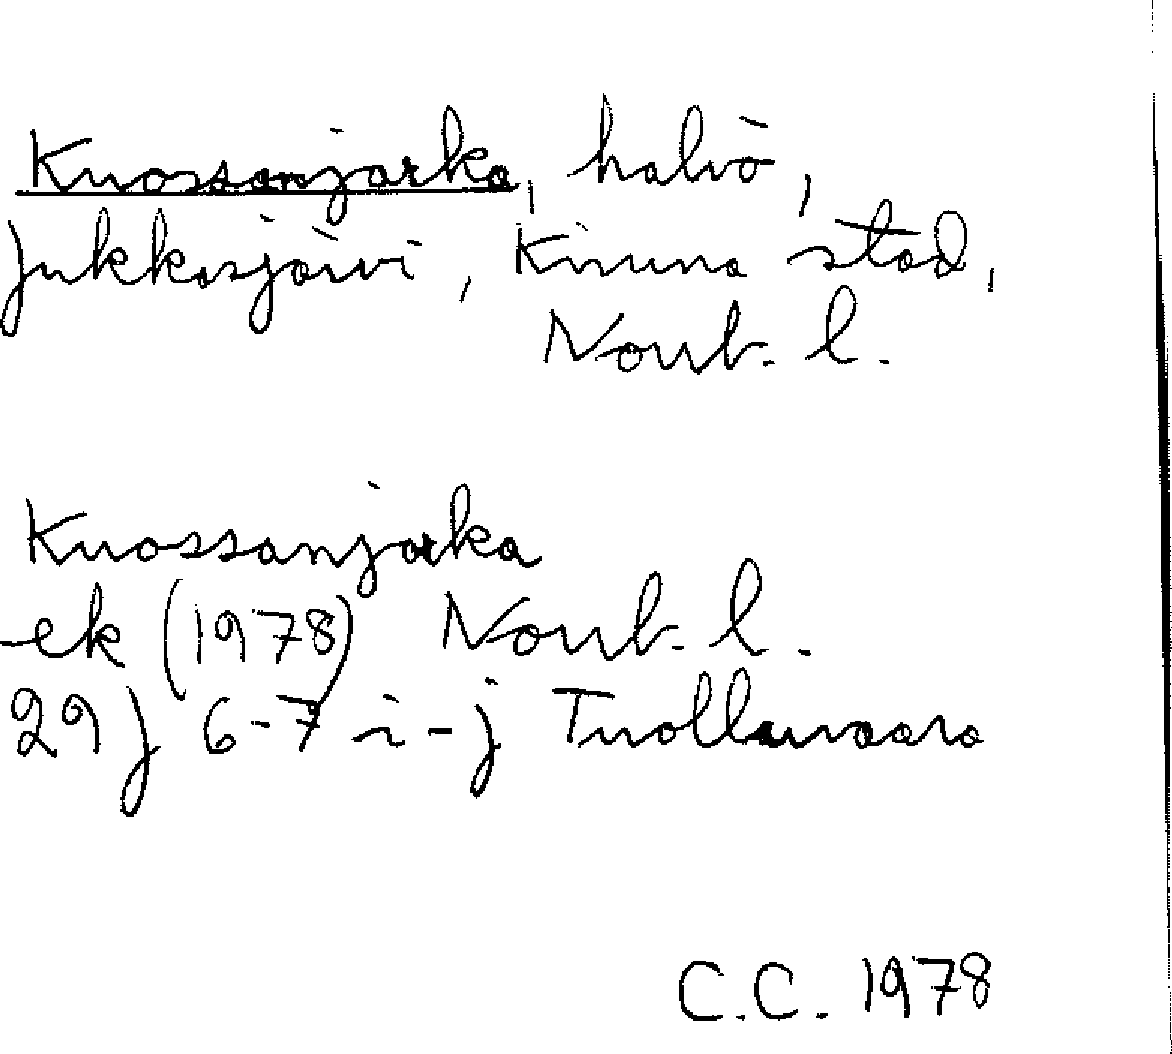 Kuossanjarka, halvö,
Jukkasjärvi, Kiruna stad,
Norrb. l.
Kuossanjarka
ek (1978) Norrb. l.
29 J 6-7 i-j Tuolluvaara
C.C. 1978